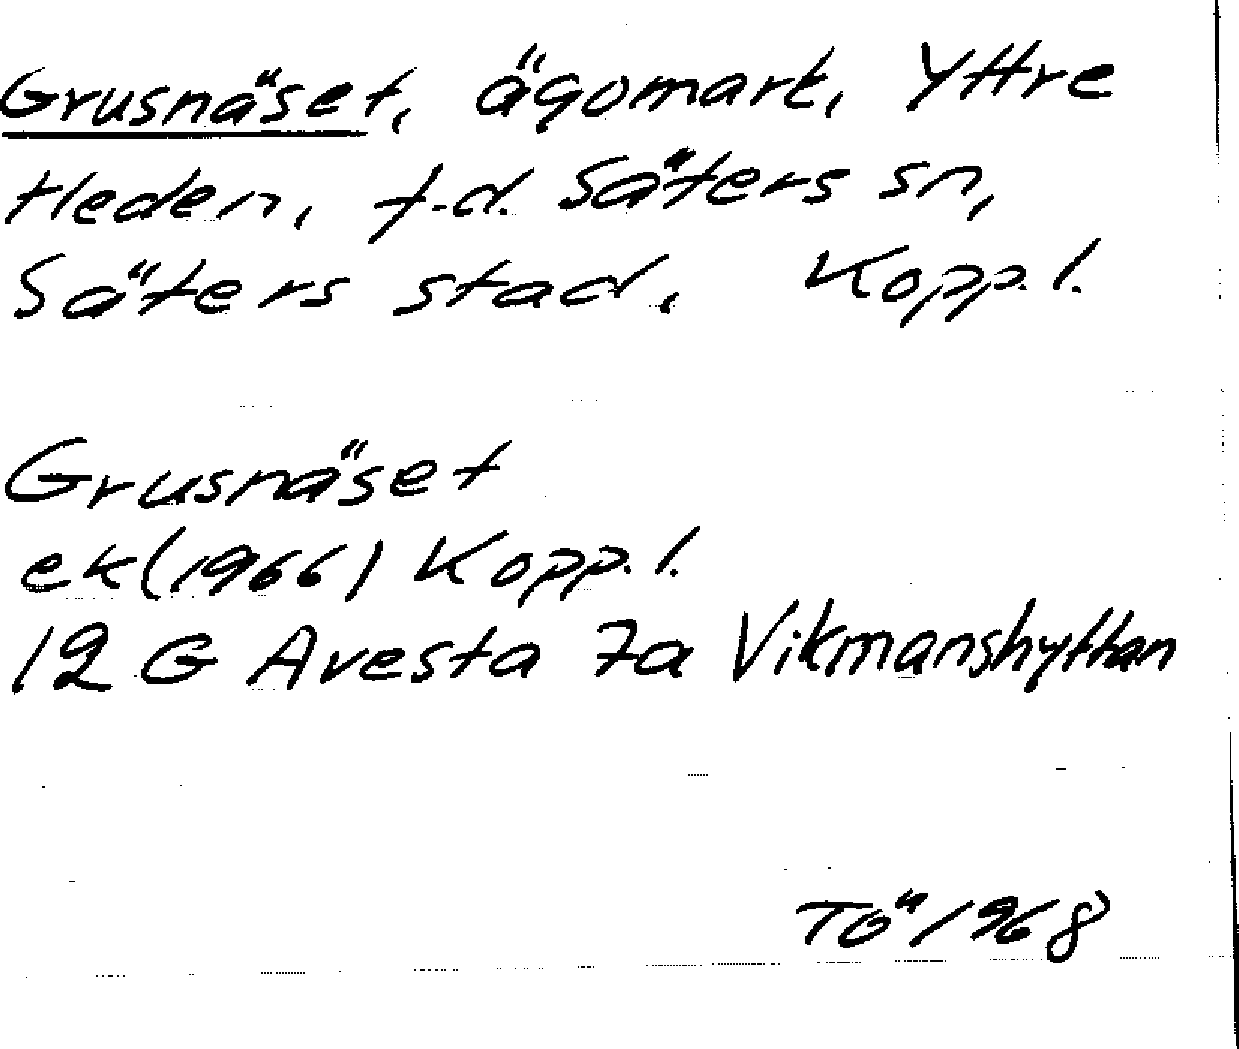 Grusnäset, ägomark, Yttre
Heden, f.d. Säters sn,
Säters stad. Koppl.
Grusnäset
ek (1966) Kopp. l.
12 G Avesta 7a Vikmanshyttan
TÖ 1968